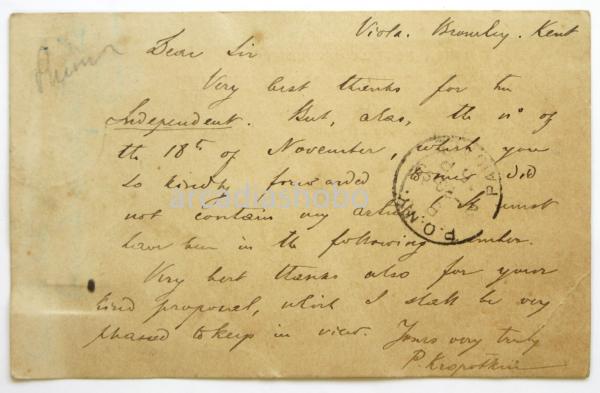 Viola. Bromley. Kent
Dear Sir
Very best thanks for the
Independent. But, alas, the n° of
the 18th of November, which you
so kindly forwarded me, did
not contain my article. It must
have been in the following number.
Very best thanks also for your
kind proposal, which I shall be very
pleased to keep in view. Yours very truly
P. Kropotkin
arcadiashobo
PAID